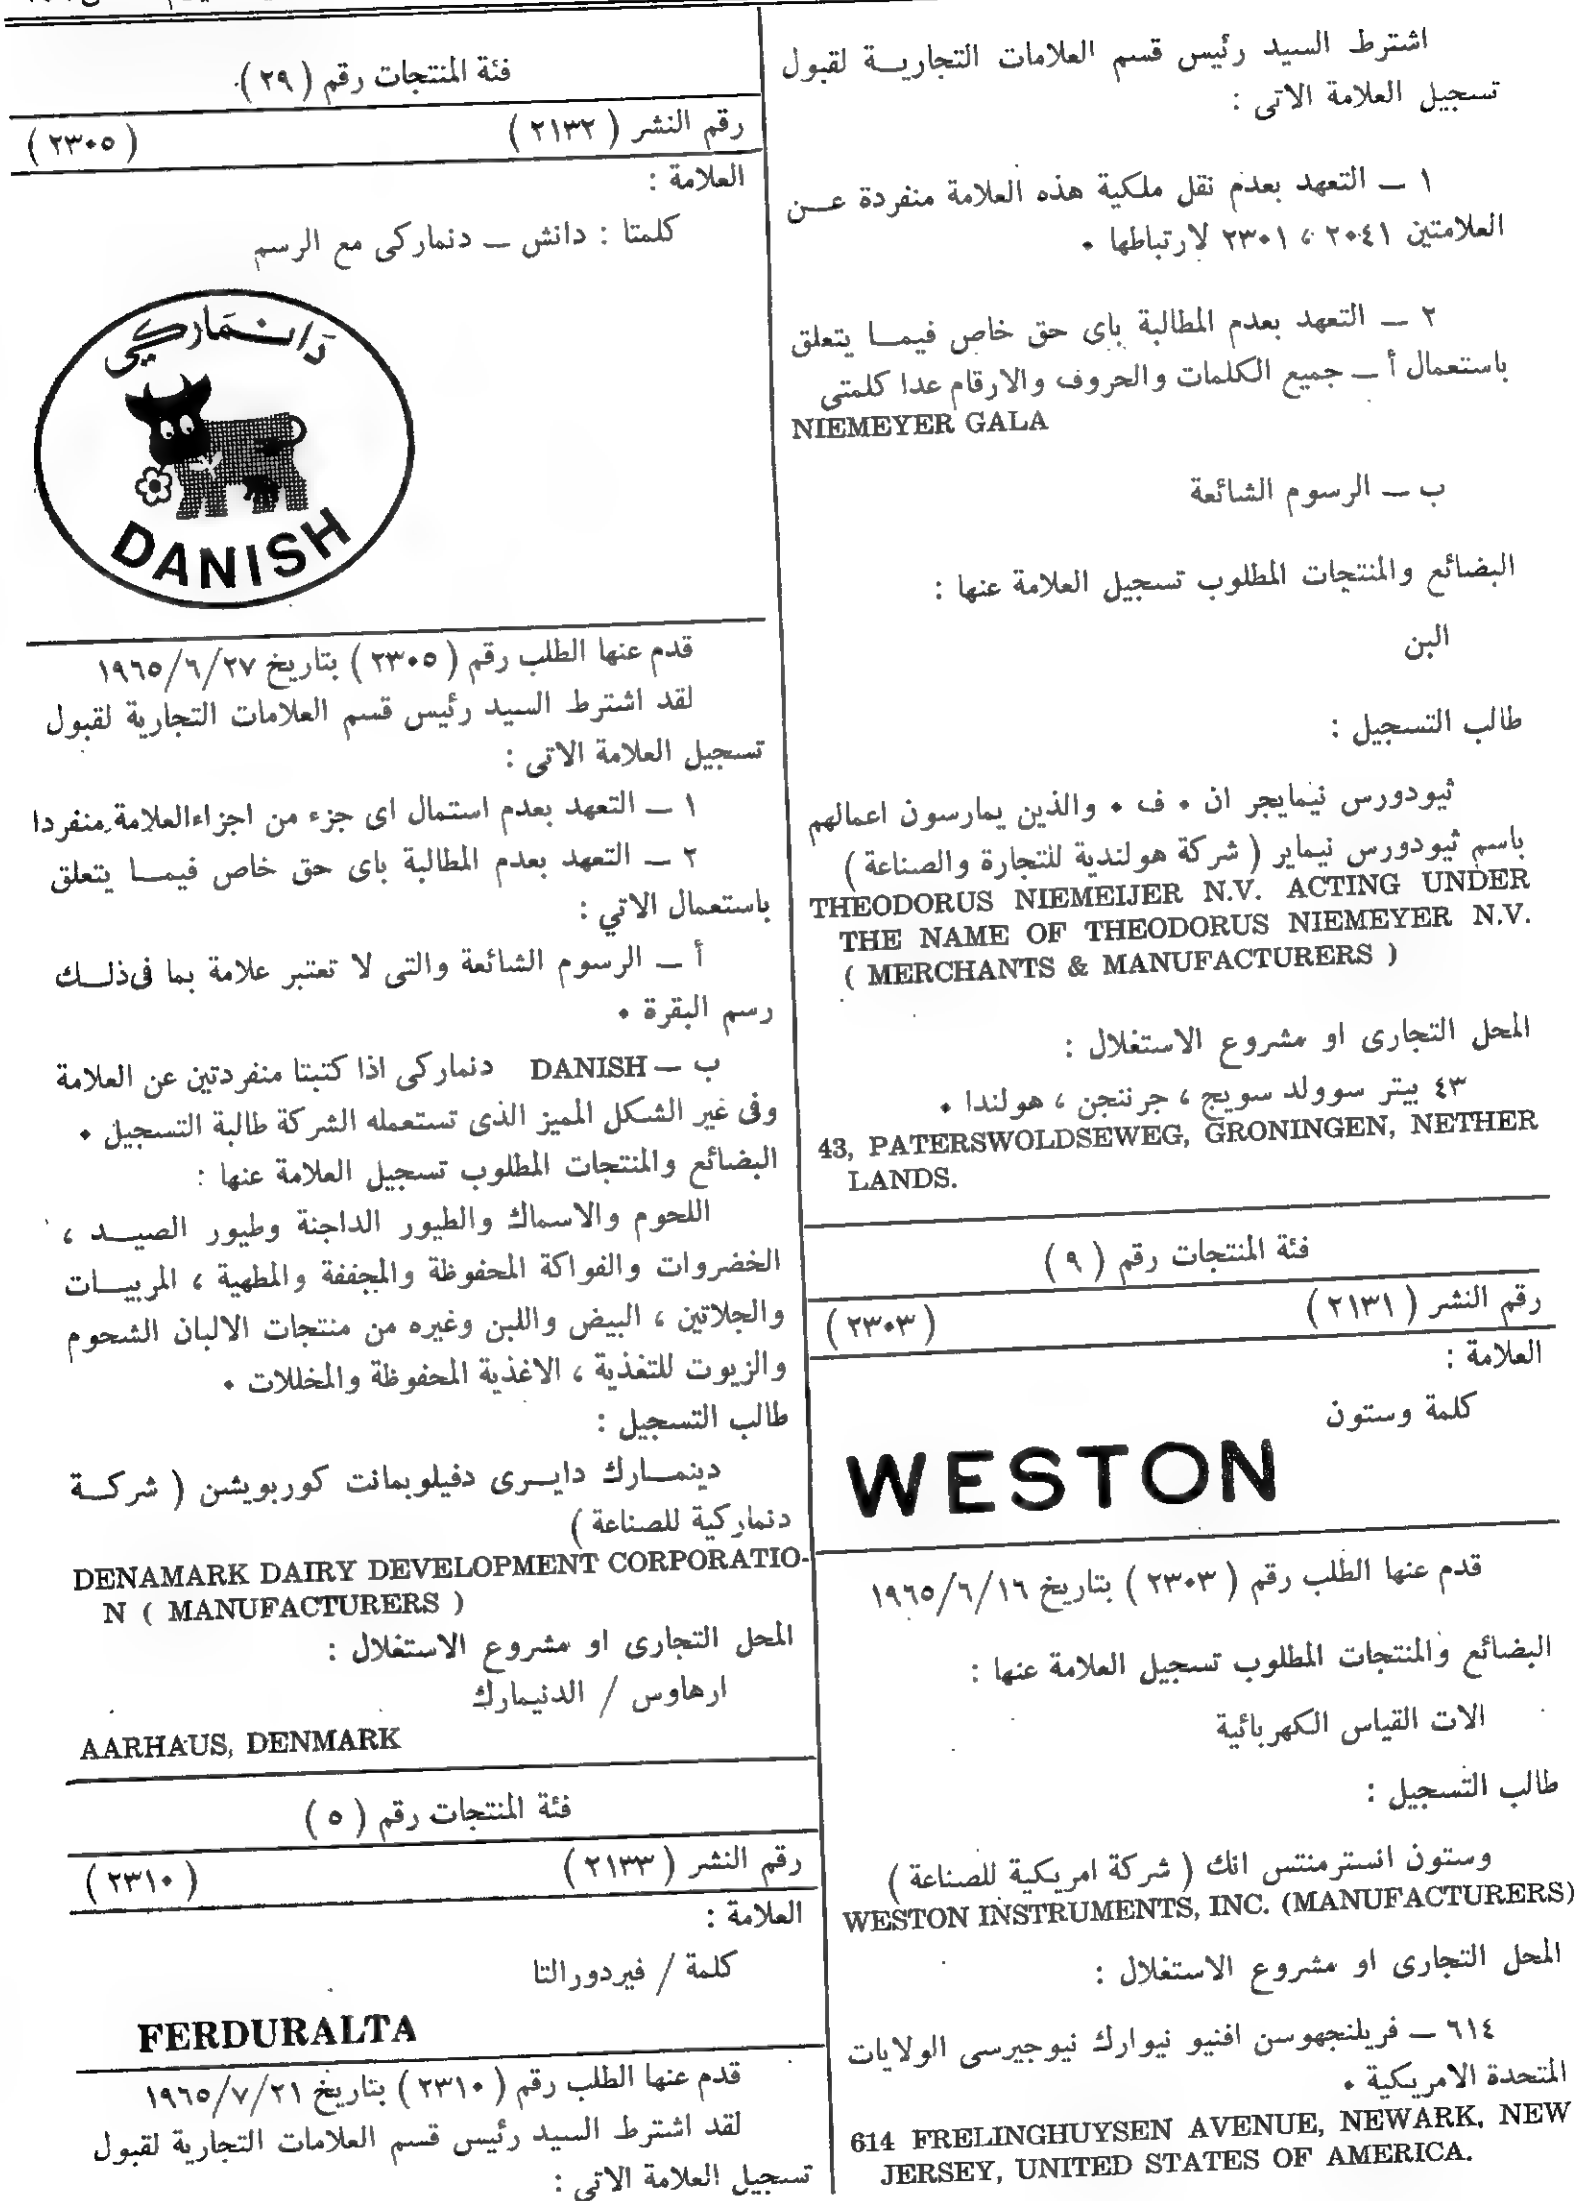 اشترط السيد رئيس قسم العلامات التجاريــة لقبول
تسجيل العلامة الاتى :
١ ــ التعهد بعدم نقل ملكية هذه العلامة منفردة عــن
العلامتين ٢٠٤١ ، ٢٣٠١ لارتباطها ٠
٢ ــ التعهد بعدم المطالبة باى حق خاص فيمــا يتعلق
باستعمال أ ــ جميع الكلمات والحروف والارقام عدا كلمتى
NIEMEYER GALA
ب ــ الرسوم الشائعة
البضائع والمنتجات المطلوب تسجيل العلامة عنها :
البن
طالب التسجيل :
ثيودورس نيمايجر ان ٠ ف ٠ والذين يمارسون اعمالهم
باسم ثيودورس نيماير ( شركة هولندية للتجارة والصناعة )
THEODORUS NIEMEIJER N.V. ACTING UNDER
THE NAME OF THEODORUS NIEMEYER N.V.
( MERCHANTS & MANUFACTURERS )
المحل التجارى او مشروع الاستغلال :
٤٣ بيتر سوولد سويج ، جرننجن ، هولندا ٠
43, PATERSWOLDSEWEG, GRONINGEN, NETHER
LANDS.
فئة المنتجات رقم ( ٩ )
رقم النشر ( ٢١٣١ ) ( ٢٣٠٣ )
العلامة :
كلمة وستون
WESTON
قدم عنها الطلب رقم ( ٢٣٠٣ ) بتاريخ ١٩٦٥/٦/١٦
البضائع والمنتجات المطلوب تسجيل العلامة عنها :
الات القياس الكهربائية
طالب التسجيل :
وستون انسترمنتس انك ( شركة امريكية للصناعة )
WESTON INSTRUMENTS, INC. (MANUFACTURERS)
المحل التجارى او مشروع الاستغلال :
٦١٤ ــ فريلنجهوسن افنيو نيوارك نيوجيرسى الولايات
المتحدة الامريكية ٠
614 FRELINGHUYSEN AVENUE, NEWARK, NEW
JERSEY, UNITED STATES OF AMERICA.
فئة المنتجات رقم ( ٢٩ )
رقم النشر ( ٢١٣٢ ) ( ٢٣٠٥ )
العلامة :
كلمتا : دانش ــ دنماركى مع الرسم
دَانـمَاركي
DANISH
قدم عنها الطلب رقم ( ٢٣٠٥ ) بتاريخ ١٩٦٥/٦/٢٧
لقد اشترط السيد رئيس قسم العلامات التجارية لقبول
تسجيل العلامة الاتى :
١ ــ التعهد بعدم استمال اى جزء من اجزاءالعلامة منفردا
٢ ــ التعهد بعدم المطالبة باى حق خاص فيمــا يتعلق
باستعمال الاتي :
أ ــ الرسوم الشائعة والتى لا تعتبر علامة بما فىذلــك
رسم البقرة ٠
ب ــ DANISH دنماركى اذا كتبتا منفردتين عن العلامة
وفى غير الشكل المميز الذى تستعمله الشركة طالبة التسجيل ٠
البضائع والمنتجات المطلوب تسجيل العلامة عنها :
اللحوم والاسماك والطيور الداجنة وطيور الصيــد ،
الخضروات والفواكة المحفوظة والمجففة والمطهية ، المربيــات
والجلاتين ، البيض واللبن وغيره من منتجات الالبان الشحوم
والزيوت للتغذية ، الاغذية المحفوظة والمخللات ٠
طالب التسجيل :
دينمــارك دايــرى دفيلوبمانت كوربويشن ( شركــة
دنماركية للصناعة )
DENAMARK DAIRY DEVELOPMENT CORPORATIO-
N ( MANUFACTURERS )
المحل التجارى او مشروع الاستغلال :
ارهاوس / الدنيمارك
AARHAUS, DENMARK
فئة المنتجات رقم ( ٥ )
رقم النشر ( ٢١٣٣ ) ( ٢٣١٠ )
العلامة :
كلمة / فيردورالتا
FERDURALTA
قدم عنها الطلب رقم ( ٢٣١٠ ) بتاريخ ١٩٦٥/٧/٢١
لقد اشترط السيد رئيس قسم العلامات التجارية لقبول
تسجيل العلامة الاتى :